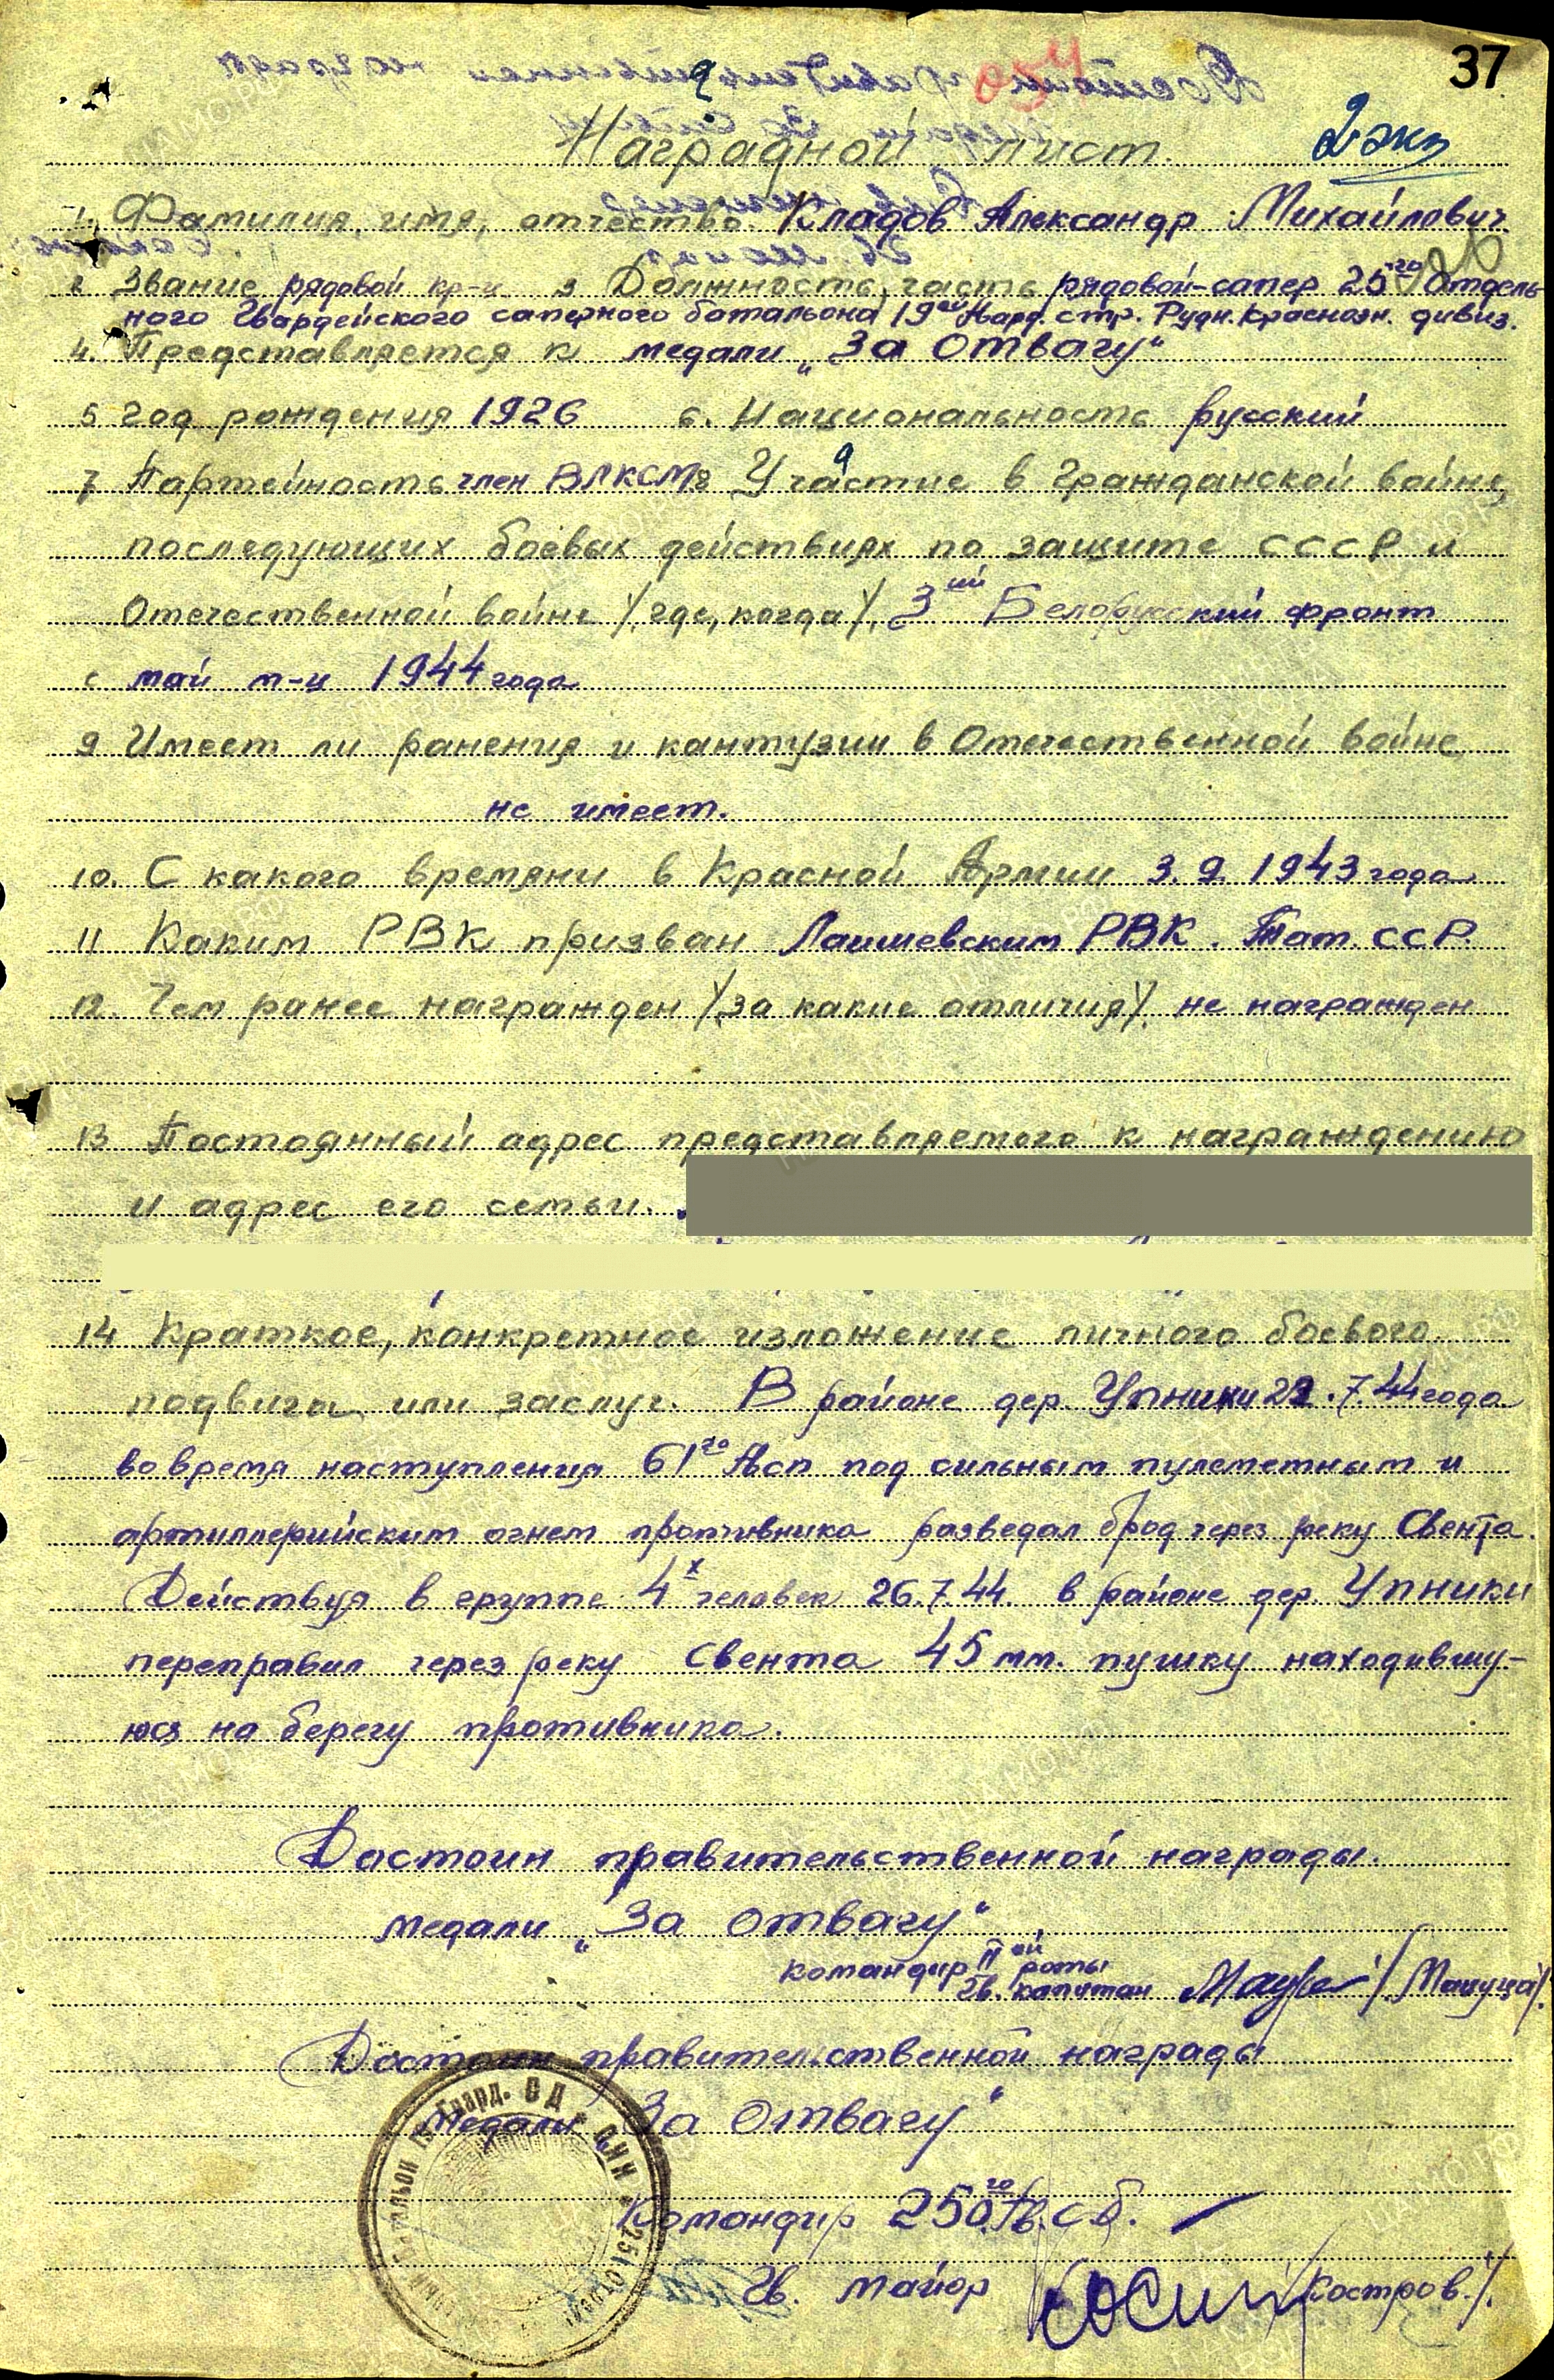 37
Наградной лист. 2 экз
1. Фамилия, имя, отчество Кладов Александр Михайлович.
2 Звание рядовой кр-ц 3 Должность, часть рядовой-сапер 25го Отдель-
ного Гвардейского саперного батальона 19ой Гвард. стр. Рудн. Краснозн. дивиз.
4. Представляется к медали „За Отвагу“
5 Год рождения 1926 6. Национальность русский
7 Партейность член ВЛКСМ 8 Участие в Гражданской войне,
последующих боевых действиях по защите СССР и
Отечественной войне /где, когда/. 3ий Белорусский фронт
с май м-ц 1944 года
9 Имеет ли ранения и кантузии в Отечественной войне
не имеет.
10. С какого времяни в Красной Армии 3.9. 1943 года
11 Каким РВК призван Лаишевским РВК. Тат. ССР.
12. Чем ранее награжден /за какие отличия/. не награжден
13 Постоянный адрес представляемого к награждению
и адрес его семьи.
14 Краткое, конкретное изложение личного боевого
подвига или заслуг. В районе дер. Упники 22.7.44 года
во время наступления 61го Гвсп под сильным пулеметным и
артиллерийским огнем противника разведал брод через реку Свента.
Действуя в группе 4х человек 26.7.44. в районе дер. Упники
переправил через реку Свента 45 мм. пушку находившу-
юся на берегу противника.
Достоин правительственной награды.
медали „За отвагу“
командир IIой роты
Гв. капитан /Мацуца/.
Достоин правительственной награды
медали „За Отвагу“
Командир 25 ОГв. с б.
Гв. майор /Костров./.